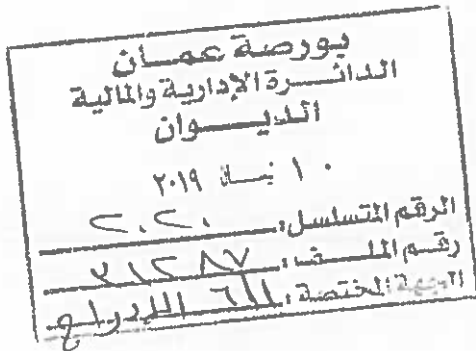 بورصة عمان
الدائرة الإدارية والمالية
الديوان
١٠ نيسان ٢٠١٩
الرقم المتسلسل: ٢٠٢٠
رقم الملف: ٣١٢٨٧
الجهة المختصة: الإدراج